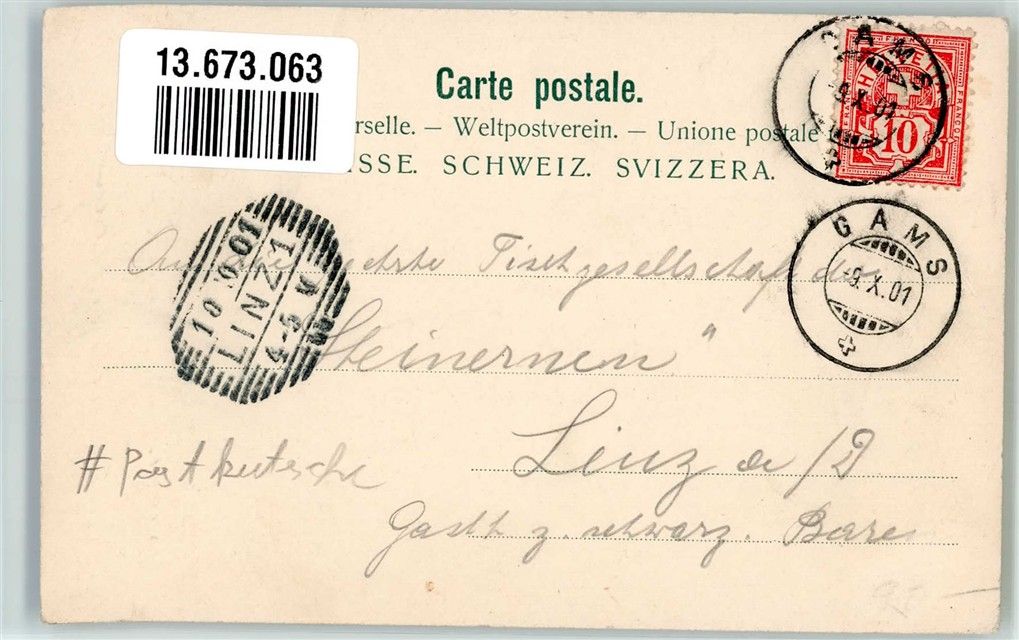 13.673.063
Carte postale.
rselle. — Weltpostverein. — Unione postale
ISSE. SCHWEIZ. SVIZZERA.
GAMS
-9.X.01
HELVETIA
FRANCO
10
GAMS
-9.X.01
10 X 01
LINZ 1
4-5 N
Tischgesellschaft der
"Steinernen"
Linz a/D
# Postkutsche
Gasth z. schwarz. Baren